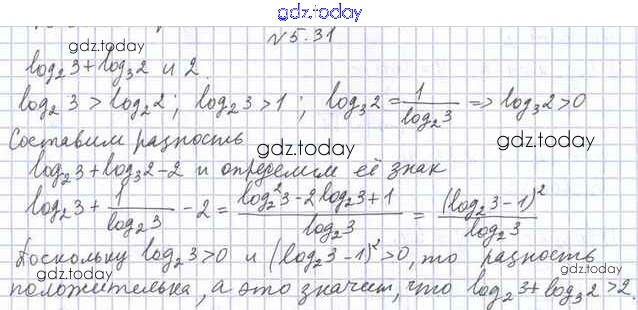 gdz.today
№5.31
gdz.today gdz.today
log₂3+log₃2 и 2.
log₂3 > log₂2; log₂3>1; log₃2 = 1/log₂3 => log₃2>0
Составим разность
gdz.today gdz.today
log₂3+log₃2-2 и определим её знак
log₂3 + 1/log₂3 - 2 = (log₂²3-2log₂3+1)/log₂3 = (log₂3-1)²/log₂3
gdz.today
Поскольку log₂3>0 и (log₂3-1)²>0, то разность
gdz.today gdz.today
положительна, а это значит, что log₂3+log₃2>2.